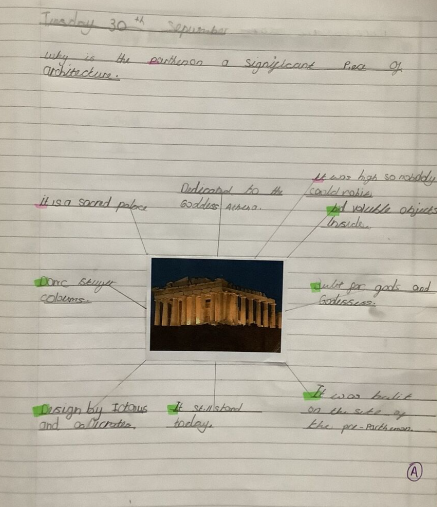 Tuesday 30th September
why is the parthenon a significant Piece of
architecture.
it is a sacred palace
Dedicated to the
Goddess Athena.
It was high so nobody
could
valuable objects
Inside.
Doric
columns.
built for gods and
Godessess.
Design by Ictinus
and
It still stand
today.
It was built
on the site of
the pre-Parthenon.
A